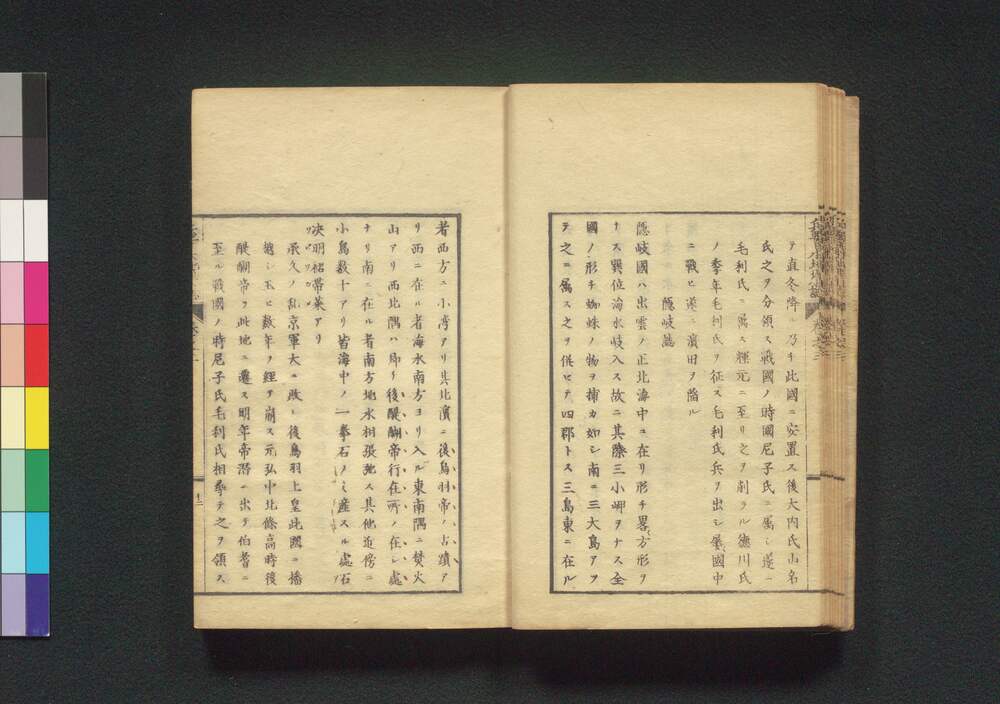 テ直冬降ル乃チ此國ニ安置ス後大内氏山名
氏之ヲ分領ス戰國ノ時國尼子氏ニ属シ遂ニ
毛利氏ニ属ス輝元ニ至リ之ヲ削ラル德川氏
ノ季年毛利氏ヲ征ス毛利氏兵ヲ出シ藝國中
ニ戰ヒ遂ニ濱田ヲ陷ル
隱岐誌
隱岐國ハ出雲ノ正北海中ニ在リ形チ畧方形ヲ
ナス巽位海水岐入ス故ニ其際三小岬ヲナス全
國ノ形チ蜘蛛ノ物ヲ捕カ如シ南ニ三大島アツ
テ之ニ属ス之ヲ併ヒテ四郡トス三島東ニ在ル
者西方ニ小湾アリ其北濱ニ後鳥羽帝ノ古蹟ア
リ西ニ在ル者海水南方ヨリ入ル東南隅ニ焚火
山アリ西北隅ハ即チ後醍醐帝行在所ノ在シ處
ナリ南ニ在ル者南方地水相張弛ス其他近傍ニ
小島數十アリ皆海中ノ一拳石ノミ産スル處石
决明昆帶菜アリ
承久ノ乱京軍大ニ敗レ後鳥羽上皇此國ニ播
遷シ玉ヒ数年ヲ經テ崩ス元弘中北條高時後
醍醐帝ヲ此地ニ遷ス明年帝潜ニ出テ伯耆ニ
至ル戰國ノ時尼子氏毛利氏相尋テ之ヲ領ス
十二